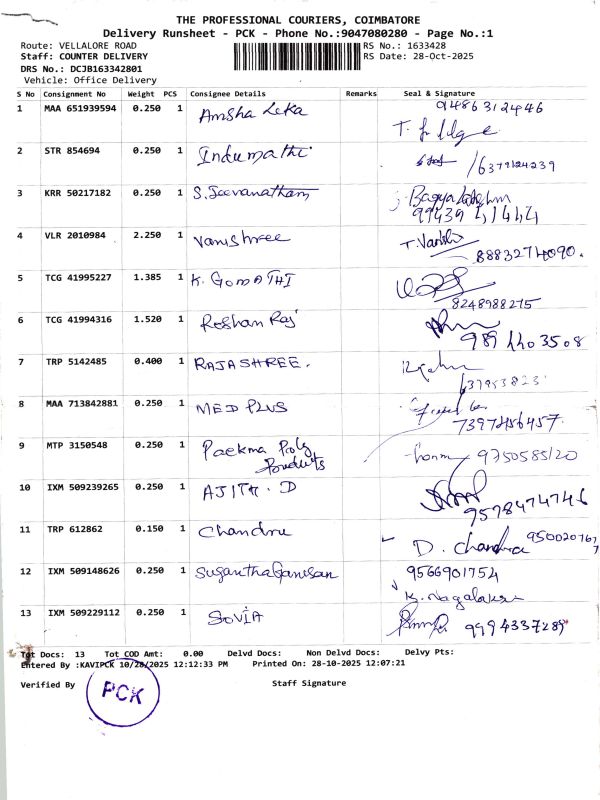 THE PROFESSIONAL COURIERS, COIMBATORE
Delivery Runsheet - PCK - Phone No.:9047080280 - Page No.:1
Route: VELLALORE ROAD RS No.: 1633428
Staff: COUNTER DELIVERY RS Date: 28-Oct-2025
DRS No.: DCJB163342801
Vehicle: Office Delivery
S No Consignment No Weight PCS Consignee Details Remarks Seal & Signature
1 MAA 651939594 0.250 1 Amsha Leka 9486312446
2 STR 854694 0.250 1 Indumathi
3 KRR 50217182 0.250 1 S. Jeevanatham
4 VLR 2010984 2.250 1 Vanishree T. Vanishri
8883274090.
5 TCG 41995227 1.385 1 K. GOMATHI
8248988275
6 TCG 41994316 1.520 1 Roshan Raj
9894403508
7 TRP 5142485 0.400 1 RAJASHREE.
8 MAA 713842881 0.250 1 MED PLUS
7397456457.
9 MTP 3150548 0.250 1 Poly
Products 9750585120
10 IXM 509239265 0.250 1 AJITH. D
9578474746
11 TRP 612862 0.150 1 Chandru
D. Chandra
12 IXM 509148626 0.250 1 SuganthaGanesan 9566901754
K. Nagalakshmi
13 IXM 509229112 0.250 1 SOVIA 9994337289
Tot Docs: 13 Tot COD Amt: 0.00 Delvd Docs: Non Delvd Docs: Delvy Pts:
Entered By :KAVIPCK 10/28/2025 12:12:33 PM Printed On: 28-10-2025 12:07:21
Verified By PCK Staff Signature